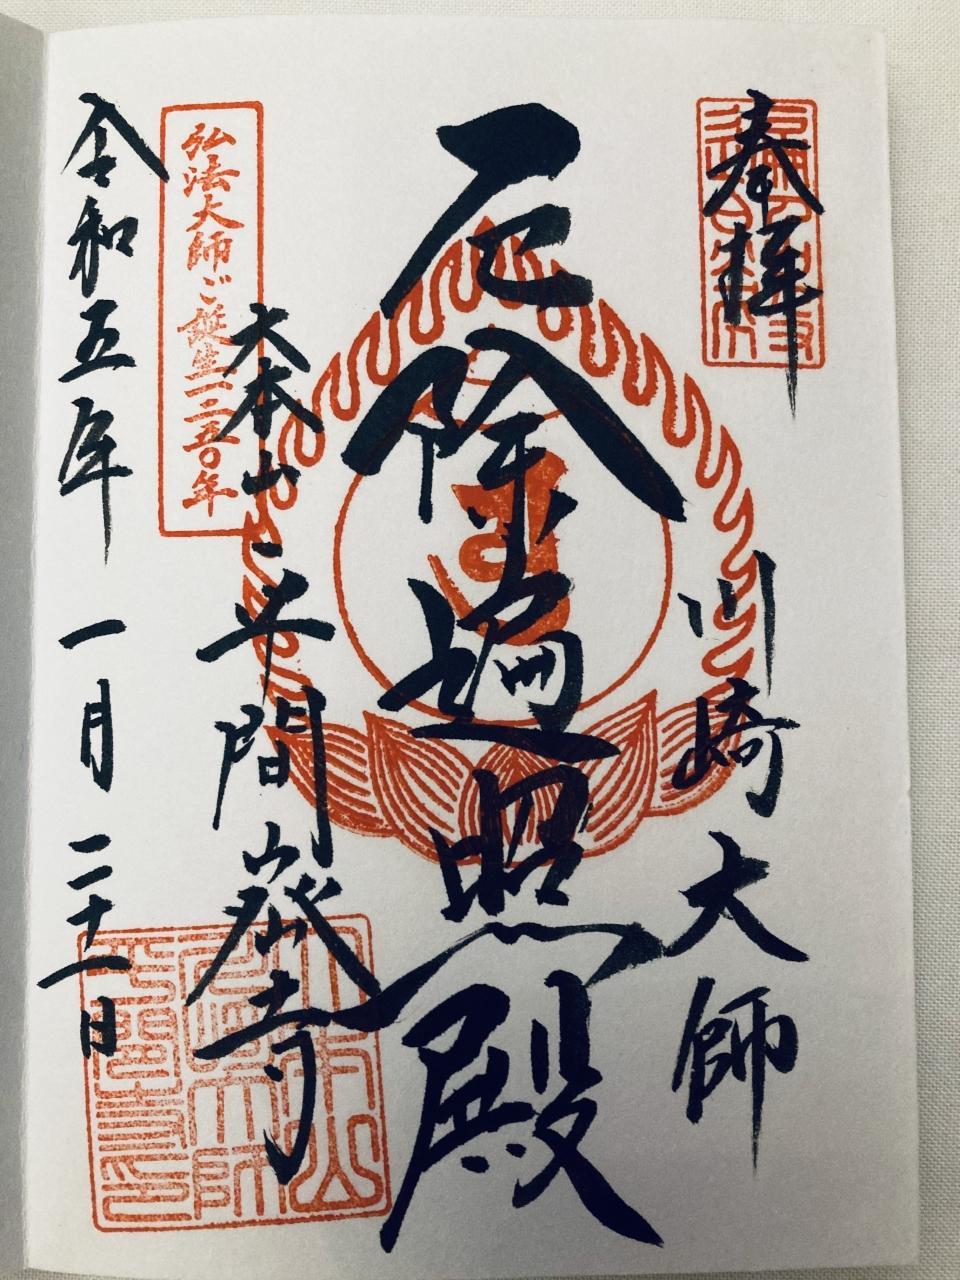 奉拝
川崎大師
厄除遍照殿
大本山平間寺
弘法大師ご誕生一二五〇年
令和五年一月二十一日